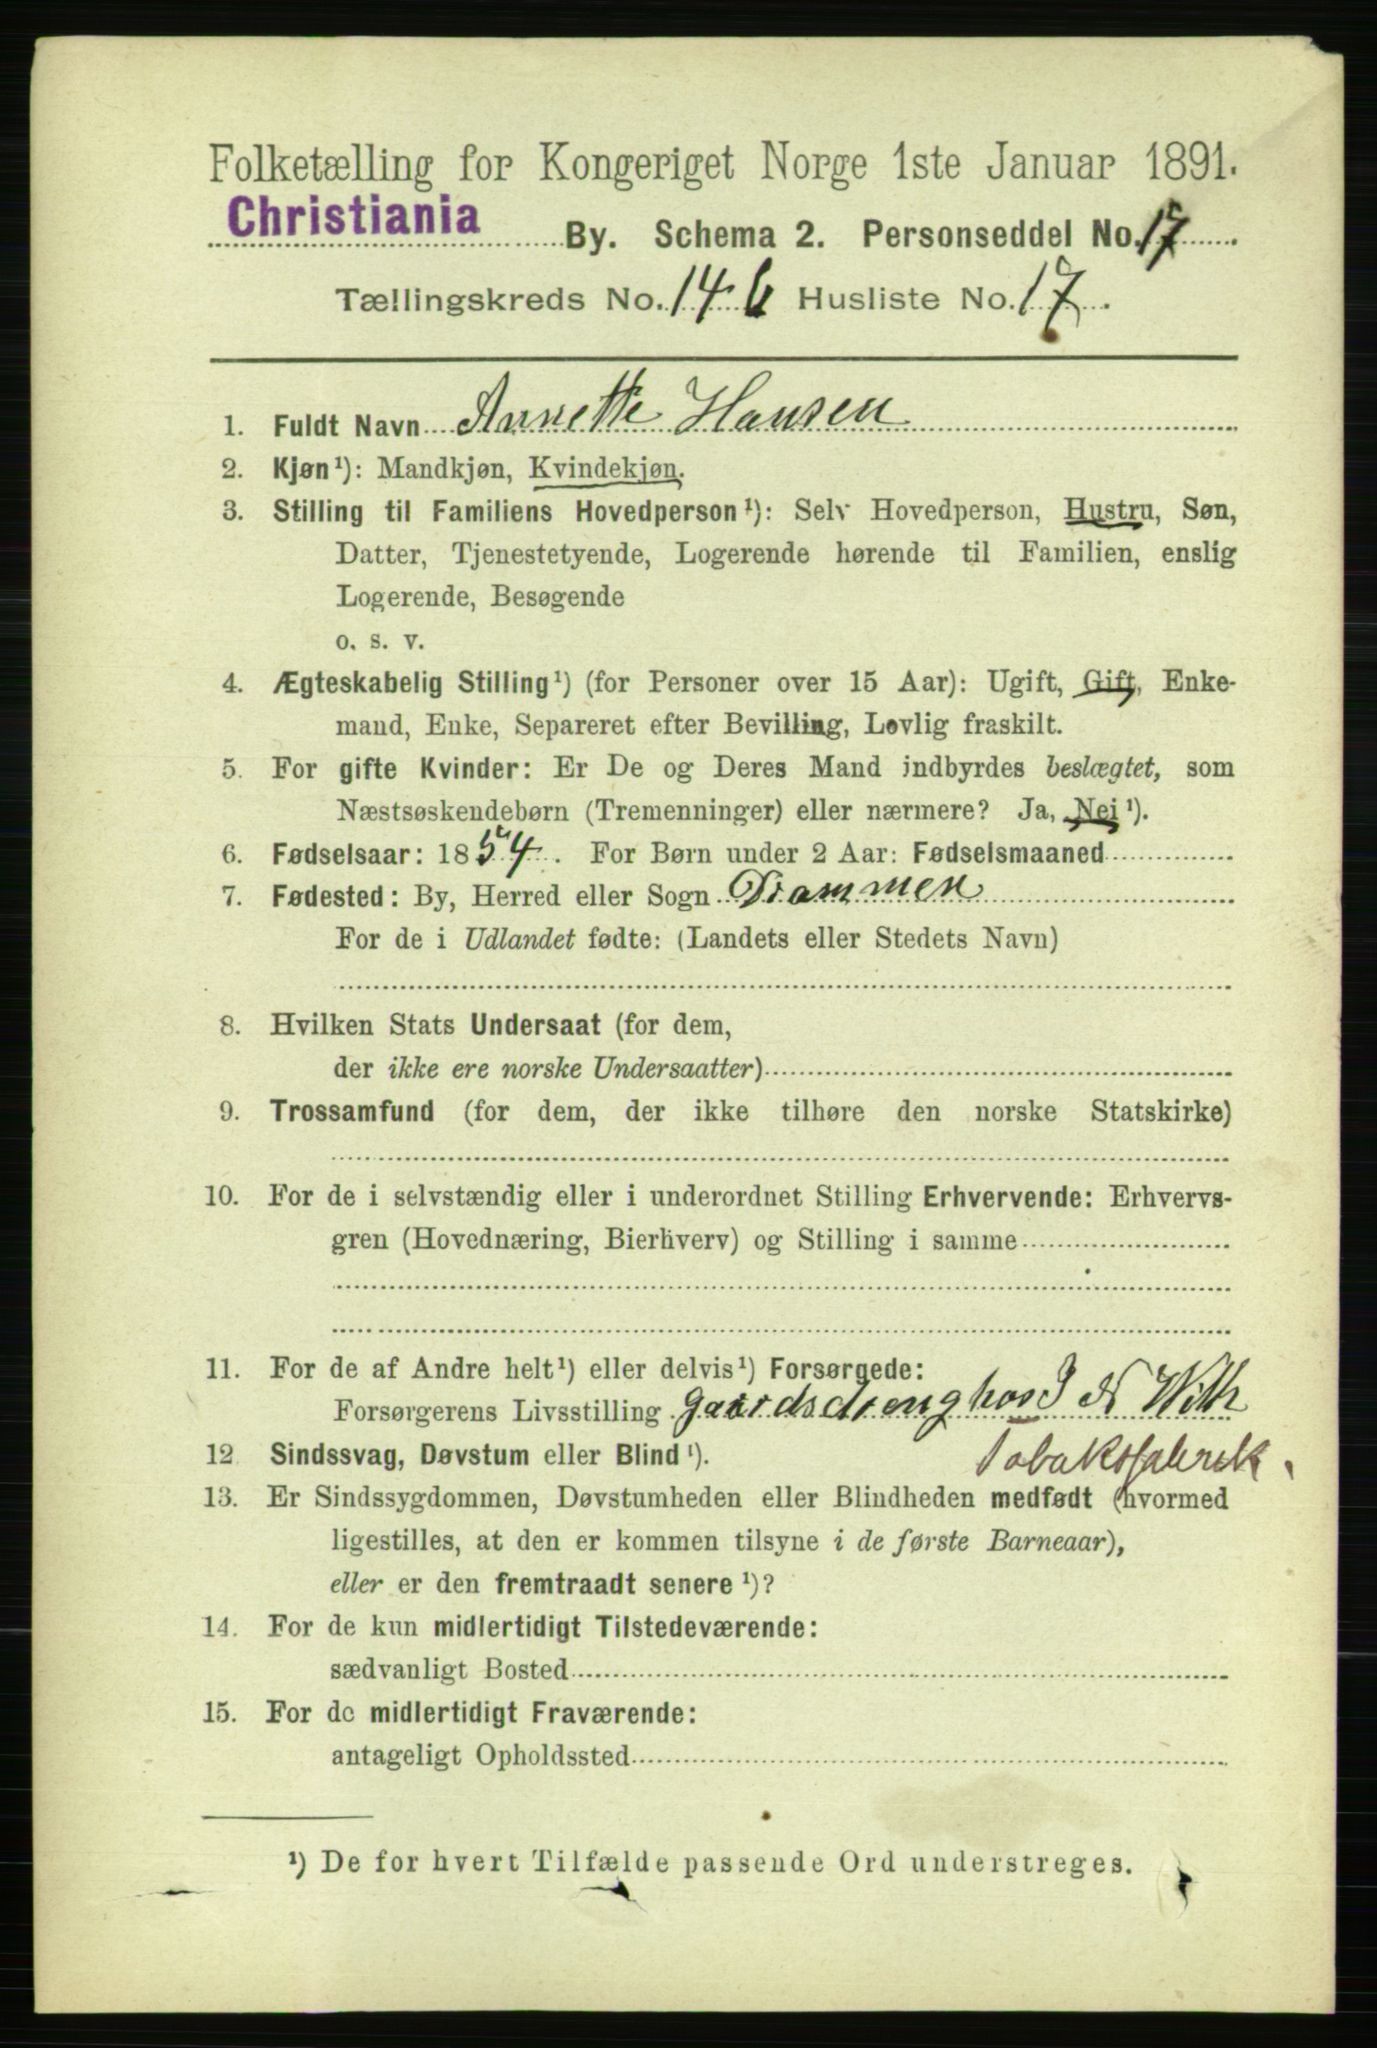 Folketælling for Kongeriget Norge 1ste Januar 1891.
Christiania By. Schema 2. Personseddel No. 17
Tællingskreds No. 146 Husliste No. 17.
1. Fuldt Navn Annette Hansen
2. Kjøn¹): Mandkjøn, Kvindekjøn.
3. Stilling til Familiens Hovedperson¹): Selv Hovedperson, Hustru, Søn,
Datter, Tjenestetyende, Logerende hørende til Familien, enslig
Logerende, Besøgende
o. s. v.
4. Ægteskabelig Stilling¹) (for Personer over 15 Aar): Ugift, Gift, Enke-
mand, Enke, Separeret efter Bevilling, Lovlig fraskilt.
5. For gifte Kvinder: Er De og Deres Mand indbyrdes beslægtet, som
Næstsøskendebørn (Tremenninger) eller nærmere? Ja, Nei¹).
6. Fødselsaar: 1854. For Børn under 2 Aar: Fødselsmaaned
7. Fødested: By, Herred eller Sogn Drammen
For de i Udlandet fødte: (Landets eller Stedets Navn)
8. Hvilken Stats Undersaat (for dem,
der ikke ere norske Undersaatter)
9. Trossamfund (for dem, der ikke tilhøre den norske Statskirke)
10. For de i selvstændig eller i underordnet Stilling Erhvervende: Erhvervs-
gren (Hovednæring, Bierhverv) og Stilling i samme
11. For de af Andre helt¹) eller delvis¹) Forsørgede:
Forsørgerens Livsstilling gaardsdreng hos J N With
Tobaksfabrik.
12 Sindssvag, Døvstum eller Blind¹).
13. Er Sindssygdommen, Døvstumheden eller Blindheden medfødt (hvormed
ligestilles, at den er kommen tilsyne i de første Barneaar),
eller er den fremtraadt senere¹)?
14. For de kun midlertidigt Tilstedeværende:
sædvanligt Bosted
15. For de midlertidigt Fraværende:
antageligt Opholdssted
¹) De for hvert Tilfælde passende Ord understreges.